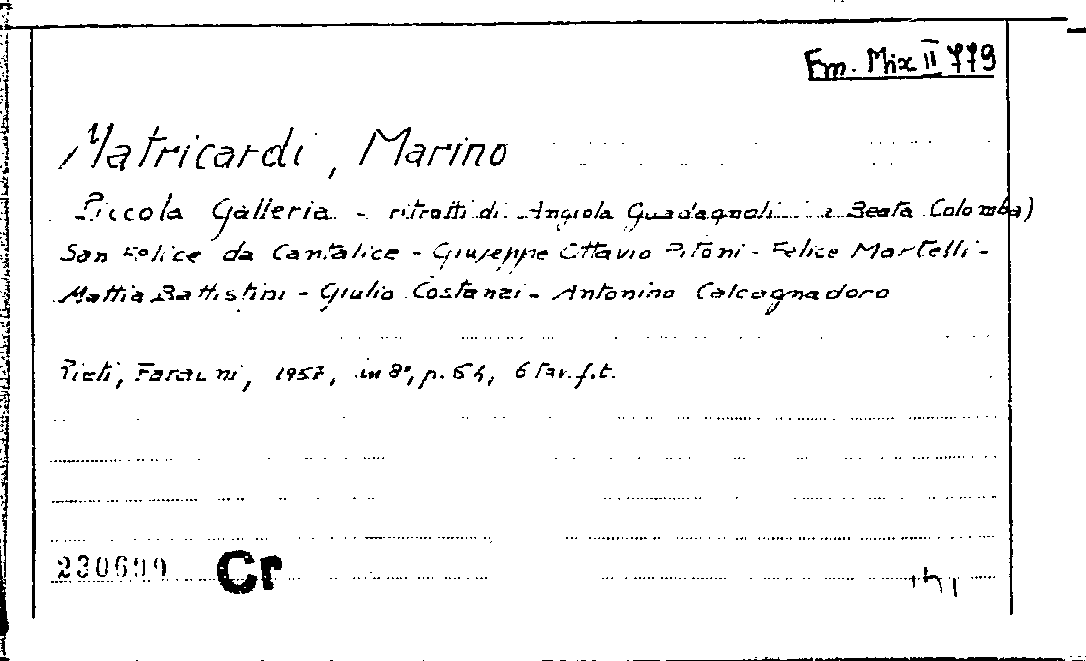 Fm. Mix II 779
Matricardi, Marino
Piccola Galleria - ritratti di Angiola Guadagnoli (la Beata Colomba)
San Felice da Cantalice - Giuseppe Ottavio Pitoni - Felice Martelli -
Mattia Battistini - Giulio Costanzi - Antonino Calcagnadoro
Rieti, Faraoni, 1957, in 8°, p. 64, 6 tav. f.t.
230699 Cr